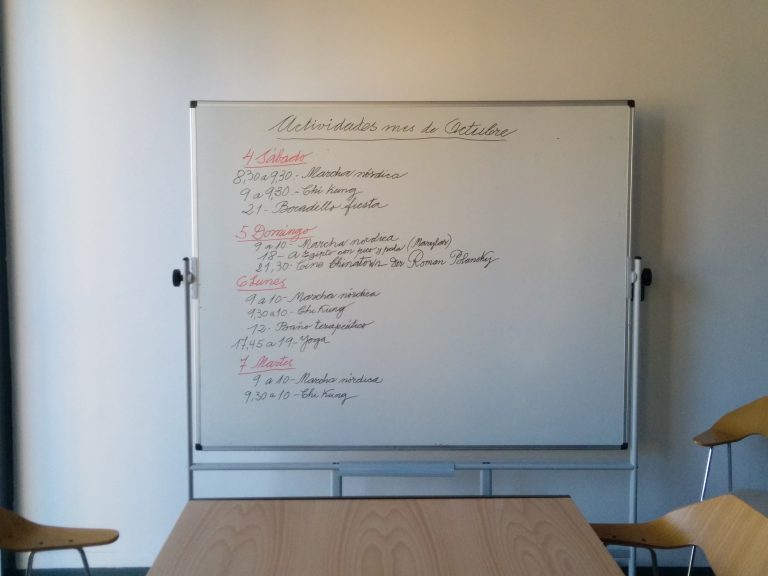 Actividades mes de Octubre
4 Sábado
8,30 a 9,30.- Marcha nórdica
9 a 9,30 - Chi Kung
21 - Bocadillo fiesta
5 Domingo
9 a 10.- Marcha nórdica
18 - A Egipto con pico y pala
21,30 - Cine Chinatown der Roman Polansky
6 Lunes
9 a 10 - Marcha nórdica
9,30 a 10 - Chi Kung
12 - Baño terapeútico
17,45 a 19 - Yoga
7 Martes
9 a 10 - Marcha nórdica
9,30 a 10 - Chi Kung